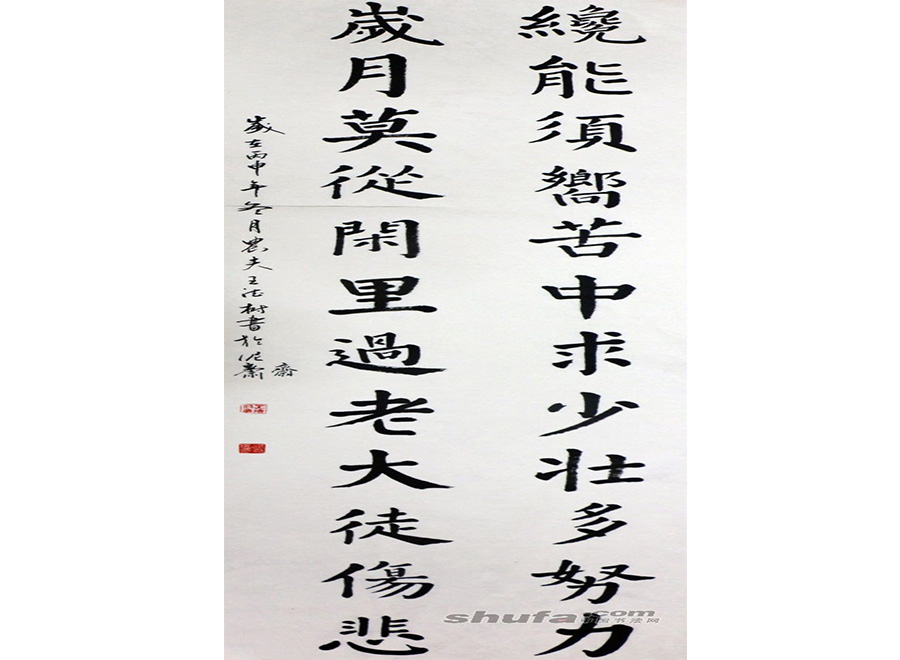 纔能須嚮苦中求少壯多努力
歲月莫從閑里過老大徒傷悲
歲在丙申年冬月農夫王法樹書於齋
shufa.com
中国书法网